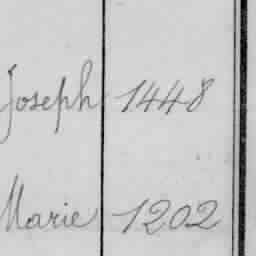 Joseph 1448
Marie 1202